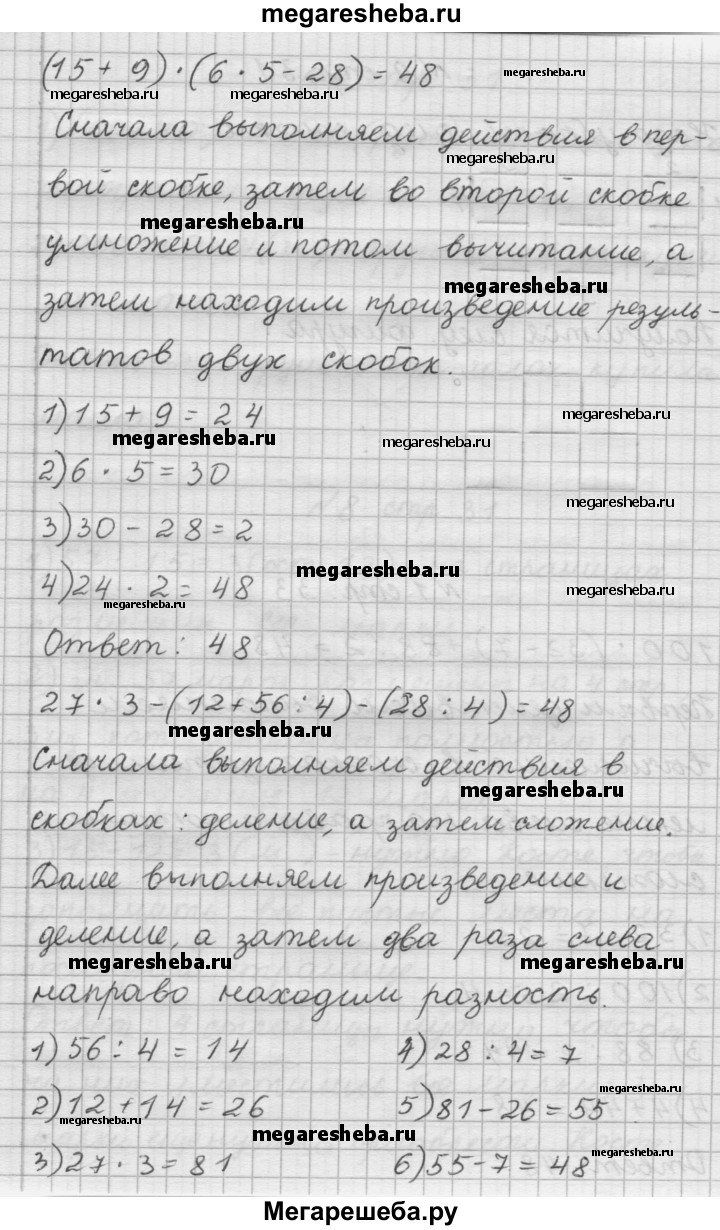 megaresheba.ru
(15 + 9) · (6 · 5 - 28) = 48
megaresheba.ru
megaresheba.ru megaresheba.ru
Сначала выполняем действия в пер-
megaresheba.ru
вой скобке, затем во второй скобке
megaresheba.ru
умножение и потом вычитание, а
megaresheba.ru
затем находим произведение резуль-
татов двух скобок.
1) 15 + 9 = 24
megaresheba.ru
megaresheba.ru
2) 6 · 5 = 30
megaresheba.ru
3) 30 - 28 = 2
megaresheba.ru
4) 24 · 2 = 48
megaresheba.ru
megaresheba.ru
Ответ: 48
27 · 3 - (12 + 56 : 4) - (28 : 4) = 48
megaresheba.ru
Сначала выполняем действия в
megaresheba.ru
скобках: деление, а затем сложение.
Далее выполняем произведение и
деление, а затем два раза слева
megaresheba.ru megaresheba.ru
направо находим разность.
1) 56 : 4 = 14 4) 28 : 4 = 7
megaresheba.ru
2) 12 + 14 = 26 5) 81 - 26 = 55
megaresheba.ru
megaresheba.ru
megaresheba.ru
3) 27 · 3 = 81 6) 55 - 7 = 48
Мегарешеба.ру